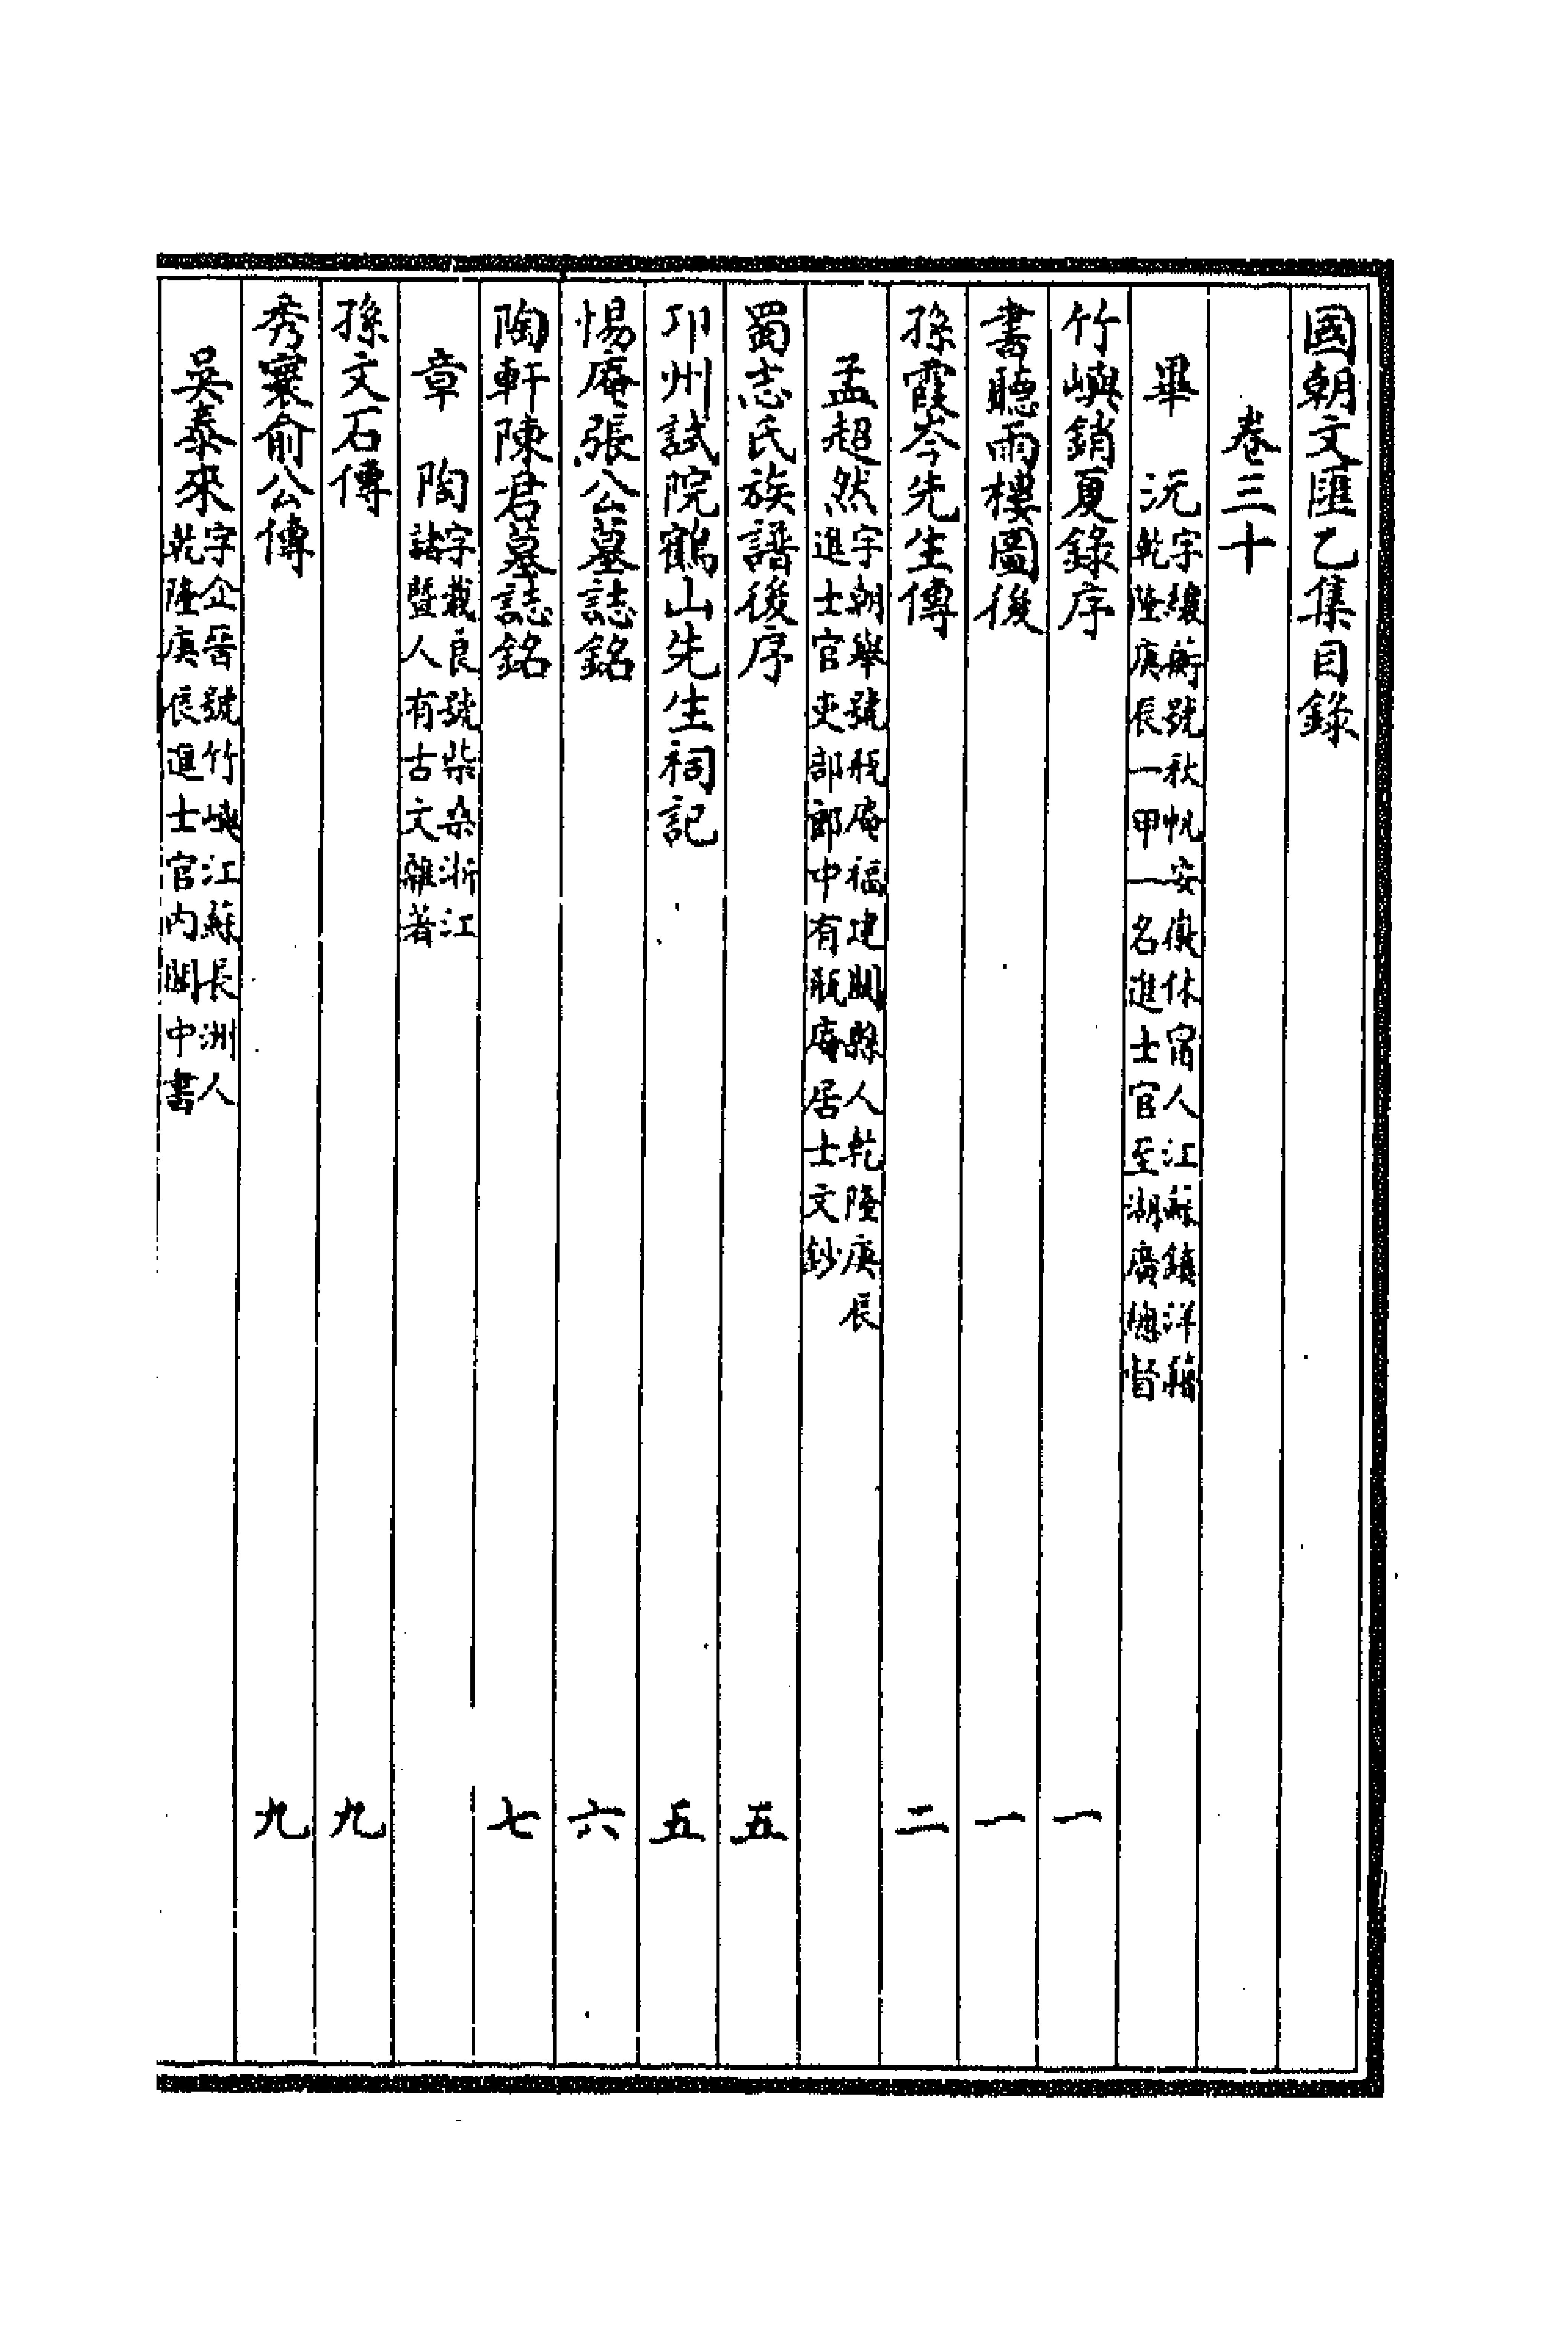 國朝文匯乙集目錄
卷三十
畢沅字纕蘅號秋帆安徽休甯人江蘇鎮洋籍
乾隆庚辰一甲一名進士官至湖廣總督
竹嶼銷夏錄序 一
書聽雨樓圖後 一
孫霞岑先生傳 二
孟超然字朝舉號瓶庵福建閩縣人乾隆庚辰
進士官吏部郎中有瓶庵居士文鈔
蜀志氏族譜後序 五
邛州試院鶴山先生祠記 五
惕庵張公墓誌銘 六
陶軒陳君墓誌銘 七
章陶字載良號柴桑浙江
諸暨人有古文雜著
孫文石傳 九
秀寰俞公傳 九
吳泰來字企晉號竹嶼江蘇長洲人
乾隆庚辰進士官內閣中書